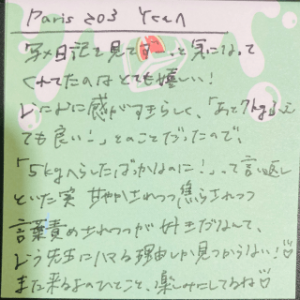 Paris 203 Yさんへ
写メ日記を見てずーっと気になって
くれてたのはとても嬉しい!
感がすきらしく、「あと7kgふえ
ても良い!」とのことだったので、
「5kgへらしたばっかなのに!」って言い返し
といた笑 甘やかされつつ焦らされつつ
言葉責めされつつが好きだなんて、
どう先生にハマる理由しか見つからない!♡
また来るよのひとこと、楽しみにしてるね♡